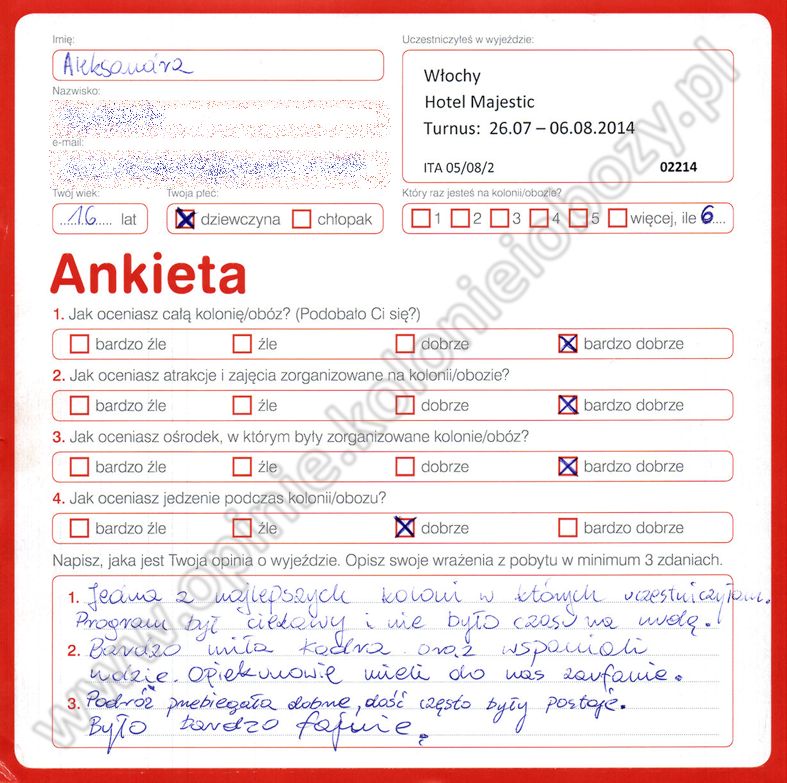 Imię:
Aleksandra
Nazwisko:
e-mail:
Twój wiek:
16 lat
Twoja płeć:
dziewczyna chłopak
Uczestniczyłeś w wyjeździe:
Włochy
Hotel Majestic
Turnus: 26.07 – 06.08.2014
ITA 05/08/2 02214
Który raz jesteś na kolonii/obozie?
1 2 3 4 5 więcej, ile 6
Ankieta
1. Jak oceniasz całą kolonię/obóz? (Podobało Ci się?)
bardzo źle źle dobrze bardzo dobrze
2. Jak oceniasz atrakcje i zajęcia zorganizowane na kolonii/obozie?
bardzo źle źle dobrze bardzo dobrze
3. Jak oceniasz ośrodek, w którym były zorganizowane kolonie/obóz?
bardzo źle źle dobrze bardzo dobrze
4. Jak oceniasz jedzenie podczas kolonii/obozu?
bardzo źle źle dobrze bardzo dobrze
Napisz, jaka jest Twoja opinia o wyjeździe. Opisz swoje wrażenia z pobytu w minimum 3 zdaniach.
1. Jedna z najlepszych kolonii w których uczestniczyłam.
Program był ciekawy i nie było czasu na nudę.
2. Bardzo miła kadra oraz wspaniali
ludzie. Opiekunowie mieli do nas zaufanie.
3. Podróż przebiegała dobrze, dość często były postoje.
Było bardzo fajnie.
www.opinie.kolonieiobozy.pl